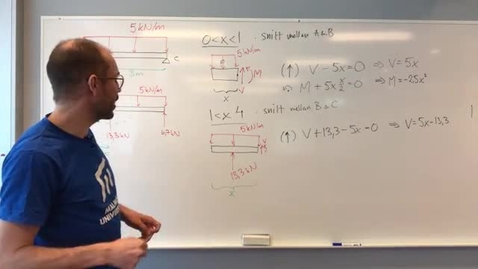 5kN/m
C
3m
5kN/m
13,3kN
0<x<1 snitt mellan A&B
5kN/m
M
V
x
(↑) V - 5x = 0 ⇒ V = 5x
M + 5x x/2 = 0 ⇒ M = -2.5x²
1<x<4 snitt mellan B&C
5kN/m
13,3kN
x
(↑) V + 13,3 - 5x = 0 ⇒ V = 5x - 13,3